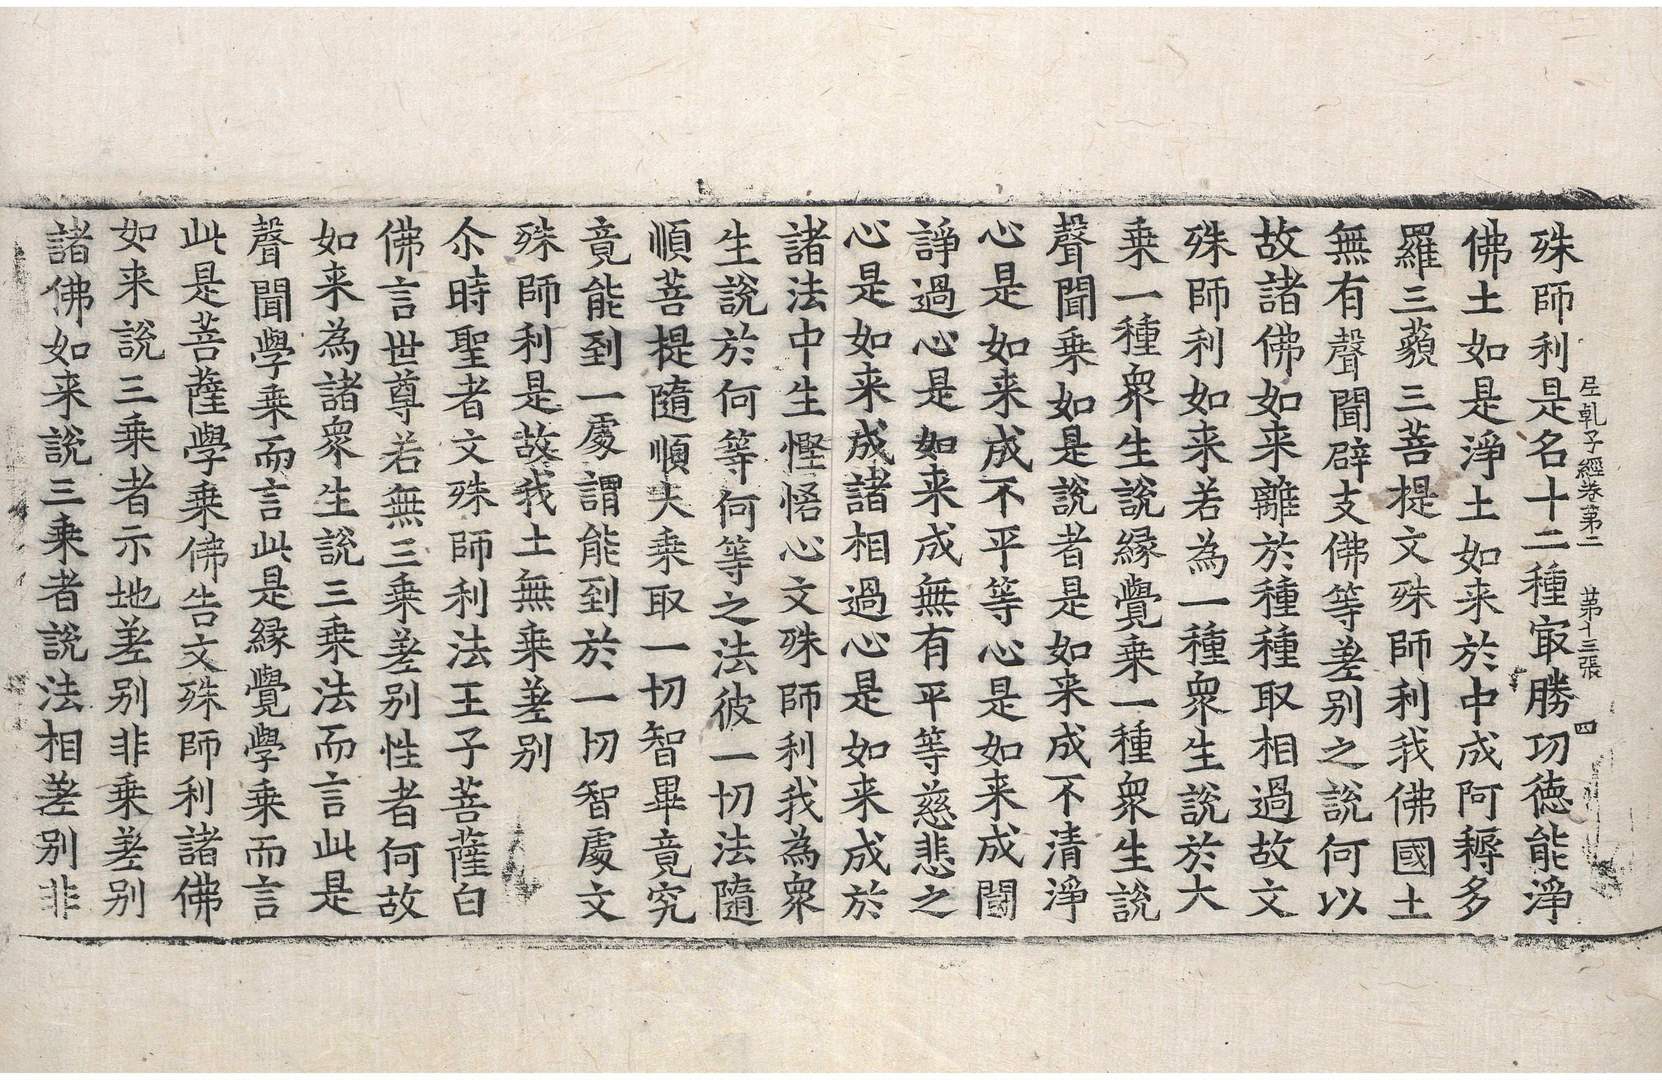 殊師利是名十二種㝡勝功徳能淨
𡰱乹子經卷第二 第十三張 四
佛土如是淨土如来於中成阿耨多
羅三藐三菩提文殊師利我佛國土
無有聲聞辟支佛等差别之說何以
故諸佛如来離於種種取相過故文
殊師利如来若為一種衆生說於大
乗一種衆生說縁覺乗一種衆生說
聲聞乗如是說者是如来成不清淨
心是如来成不平等心是如来成鬪
諍過心是如来成無有平等慈悲之
心是如来成諸相過心是如来成於
諸法中生慳悋心文殊師利我為衆
生說於何等何等之法彼一切法隨
順菩提隨順大乗取一切智畢竟究
竟能到一處謂能到於一切智處文
殊師利是故我土無乗差别
尒時聖者文殊師利法王子菩薩白
佛言世尊若無三乗差别性者何故
如来為諸衆生說三乗法而言此是
聲聞學乗而言此是縁覺學乗而言
此是菩薩學乗佛告文殊師利諸佛
如来說三乗者示地差别非乗差别
諸佛如来說三乗者說法相差别非